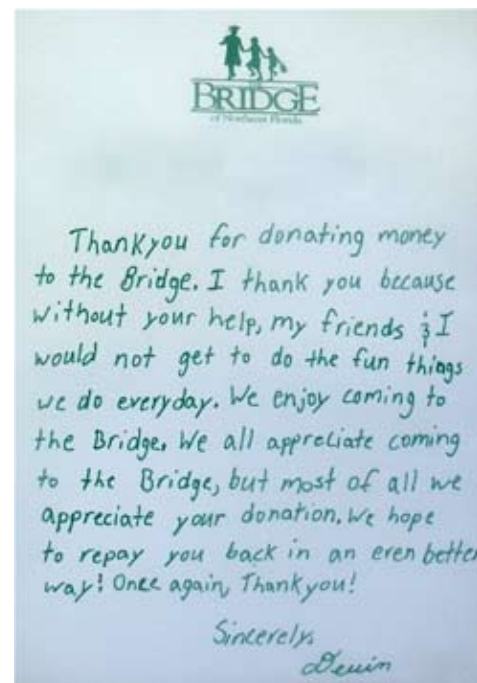 BRIDGE
of Northeast Florida
Thankyou for donating money
to the Bridge. I thank you because
without your help, my friends & I
would not get to do the fun things
we do everyday. We enjoy coming to
the Bridge. We all appreciate coming
to the Bridge, but most of all we
appreciate your donation. We hope
to repay you back in an even better
way! Once again, Thankyou!
Sincerely,
Devin